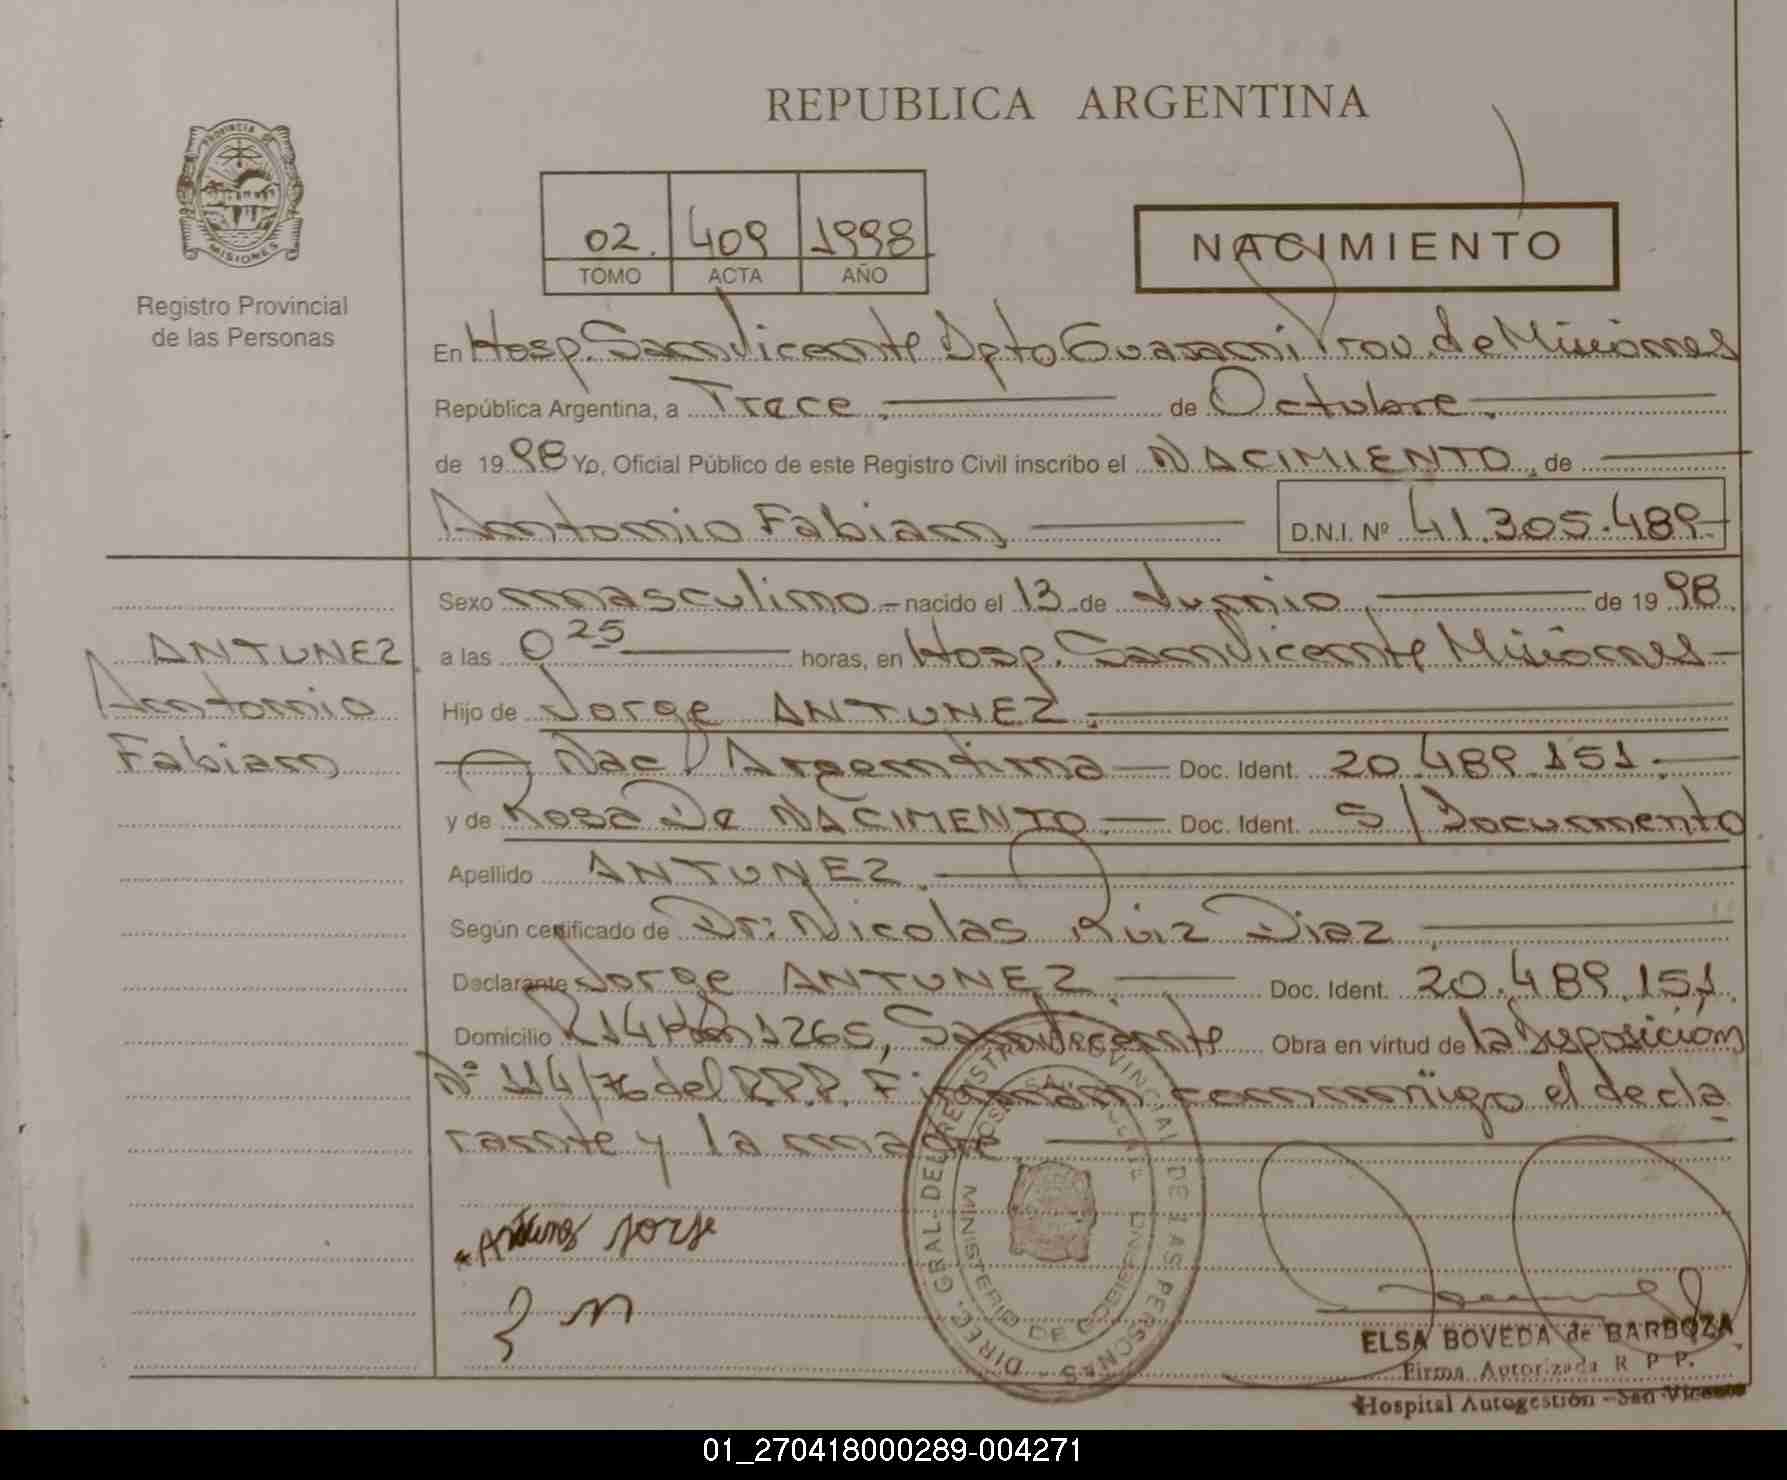 REPUBLICA ARGENTINA
PROVINCIA DE
MISIONES
Registro Provincial
de las Personas
02. 409 1998
TOMO ACTA AÑO
NACIMIENTO
En Hosp. San Vicente Dpto Guarani Prov. de Misiones
República Argentina, a Trece de Octubre
de 19 98 Yo, Oficial Público de este Registro Civil inscribo el NACIMIENTO, de
Antonio Fabian D.N.I. Nº 41.305.489
ANTUNEZ
Antonio
Fabian
Sexo masculino nacido el 13 de Junio de 19 98
a las 0 25 horas, en Hosp. San Vicente Misiones
Hijo de Jorge ANTUNEZ.
Nac/ Argentina Doc. Ident. 20.489.151.
y de Rosa De NACIMENTO. Doc. Ident. S/Documento
Apellido ANTUNEZ.
Según certificado de Dr: Nicolas Ruiz Diaz
Declarante Jorge ANTUNEZ Doc. Ident. 20.489.151.
Domicilio R14 Km 1265, San Vicente Obra en virtud de la Disposición
Nº 114/76 del R.P.P. Firman conmigo el decla
rante y la madre
Antunez Jorge
DIREC. GRAL. DEL REGISTRO PROVINCIAL DE LAS PERSONAS
MINISTERIO DE GOBIERNO
ELSA BOVEDA de BARBOZA
Firma Autorizada R P P.
Hospital Autogestión - San Vicente
01_270418000289-004271